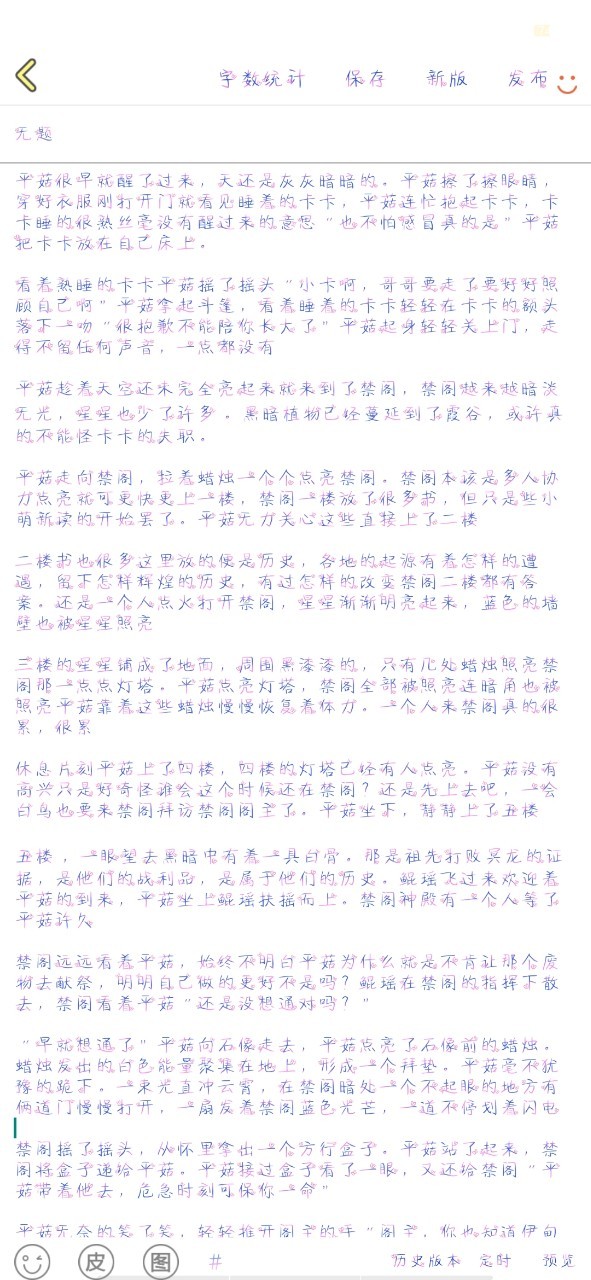 字数统计 保存 新版 发布
无题
平菇很早就醒了过来，天还是灰灰暗暗的。平菇擦了擦眼睛，
穿好衣服刚打开门就看见睡着的卡卡，平菇连忙抱起卡卡，卡
卡睡的很熟丝毫没有醒过来的意思“也不怕感冒真的是”平菇
把卡卡放在自己床上。
看着熟睡的卡卡平菇摇了摇头“小卡啊，哥哥要走了要好好照
顾自己啊”平菇拿起斗篷，看着睡着的卡卡轻轻在卡卡的额头
落下一吻“很抱歉不能陪你长大了”平菇起身轻轻关上门，走
得不留任何声音，一点都没有
平菇趁着天空还未完全亮起来就来到了禁阁，禁阁越来越暗淡
无光，星星也少了许多。黑暗植物已经蔓延到了霞谷，或许真
的不能怪卡卡的失职。
平菇走向禁阁，拉着蜡烛一个个点亮禁阁。禁阁本该是多人协
力点亮就可更快更上一楼，禁阁一楼放了很多书，但只是些小
萌新读的开始罢了。平菇无力关心这些直接上了二楼
二楼书也很多这里放的便是历史，各地的起源有着怎样的遭
遇，留下怎样辉煌的历史，有过怎样的改变禁阁二楼都有答
案。还是一个人点火打开禁阁，星星渐渐明亮起来，蓝色的墙
壁也被星星照亮
三楼的星星铺成了地面，周围黑漆漆的，只有几处蜡烛照亮禁
阁那一点点灯塔。平菇点亮灯塔，禁阁全部被照亮连暗角也被
照亮平菇靠着这些蜡烛慢慢恢复着体力。一个人来禁阁真的很
累，很累
休息片刻平菇上了四楼，四楼的灯塔已经有人点亮。平菇没有
高兴只是好奇怪谁会这个时候还在禁阁？还是先上去吧，一会
白鸟也要来禁阁拜访禁阁阁主了。平菇坐下，静静上了五楼
五楼，一眼望去黑暗中有着一具白骨。那是祖先打败冥龙的证
据，是他们的战利品，是属于他们的历史。鲲瑶飞过来欢迎着
平菇的到来，平菇坐上鲲瑶扶摇而上。禁阁神殿有一个人等了
平菇许久
禁阁远远看着平菇，始终不明白平菇为什么就是不肯让那个废
物去献祭，明明自己做的更好不是吗？鲲瑶在禁阁的指挥下散
去，禁阁看着平菇“还是没想通对吗？”
“早就想通了”平菇向石像走去，平菇点亮了石像前的蜡烛。
蜡烛发出的白色能量聚集在地上，形成一个拜垫。平菇毫不犹
豫的跪下。一束光直冲云霄，在禁阁暗处一个不起眼的地方有
俩道门慢慢打开，一扇发着禁阁蓝色光芒，一道不停划着闪电
禁阁摇了摇头，从怀里拿出一个方行盒子。平菇站了起来，禁
阁将盒子递给平菇。平菇接过盒子看了一眼，又还给禁阁“平
菇带着他去，危急时刻可保你一命”
平菇无奈的笑了笑，轻轻推开阁主的手“阁主，你也知道伊甸
皮 图 # 历史版本 定时 预览